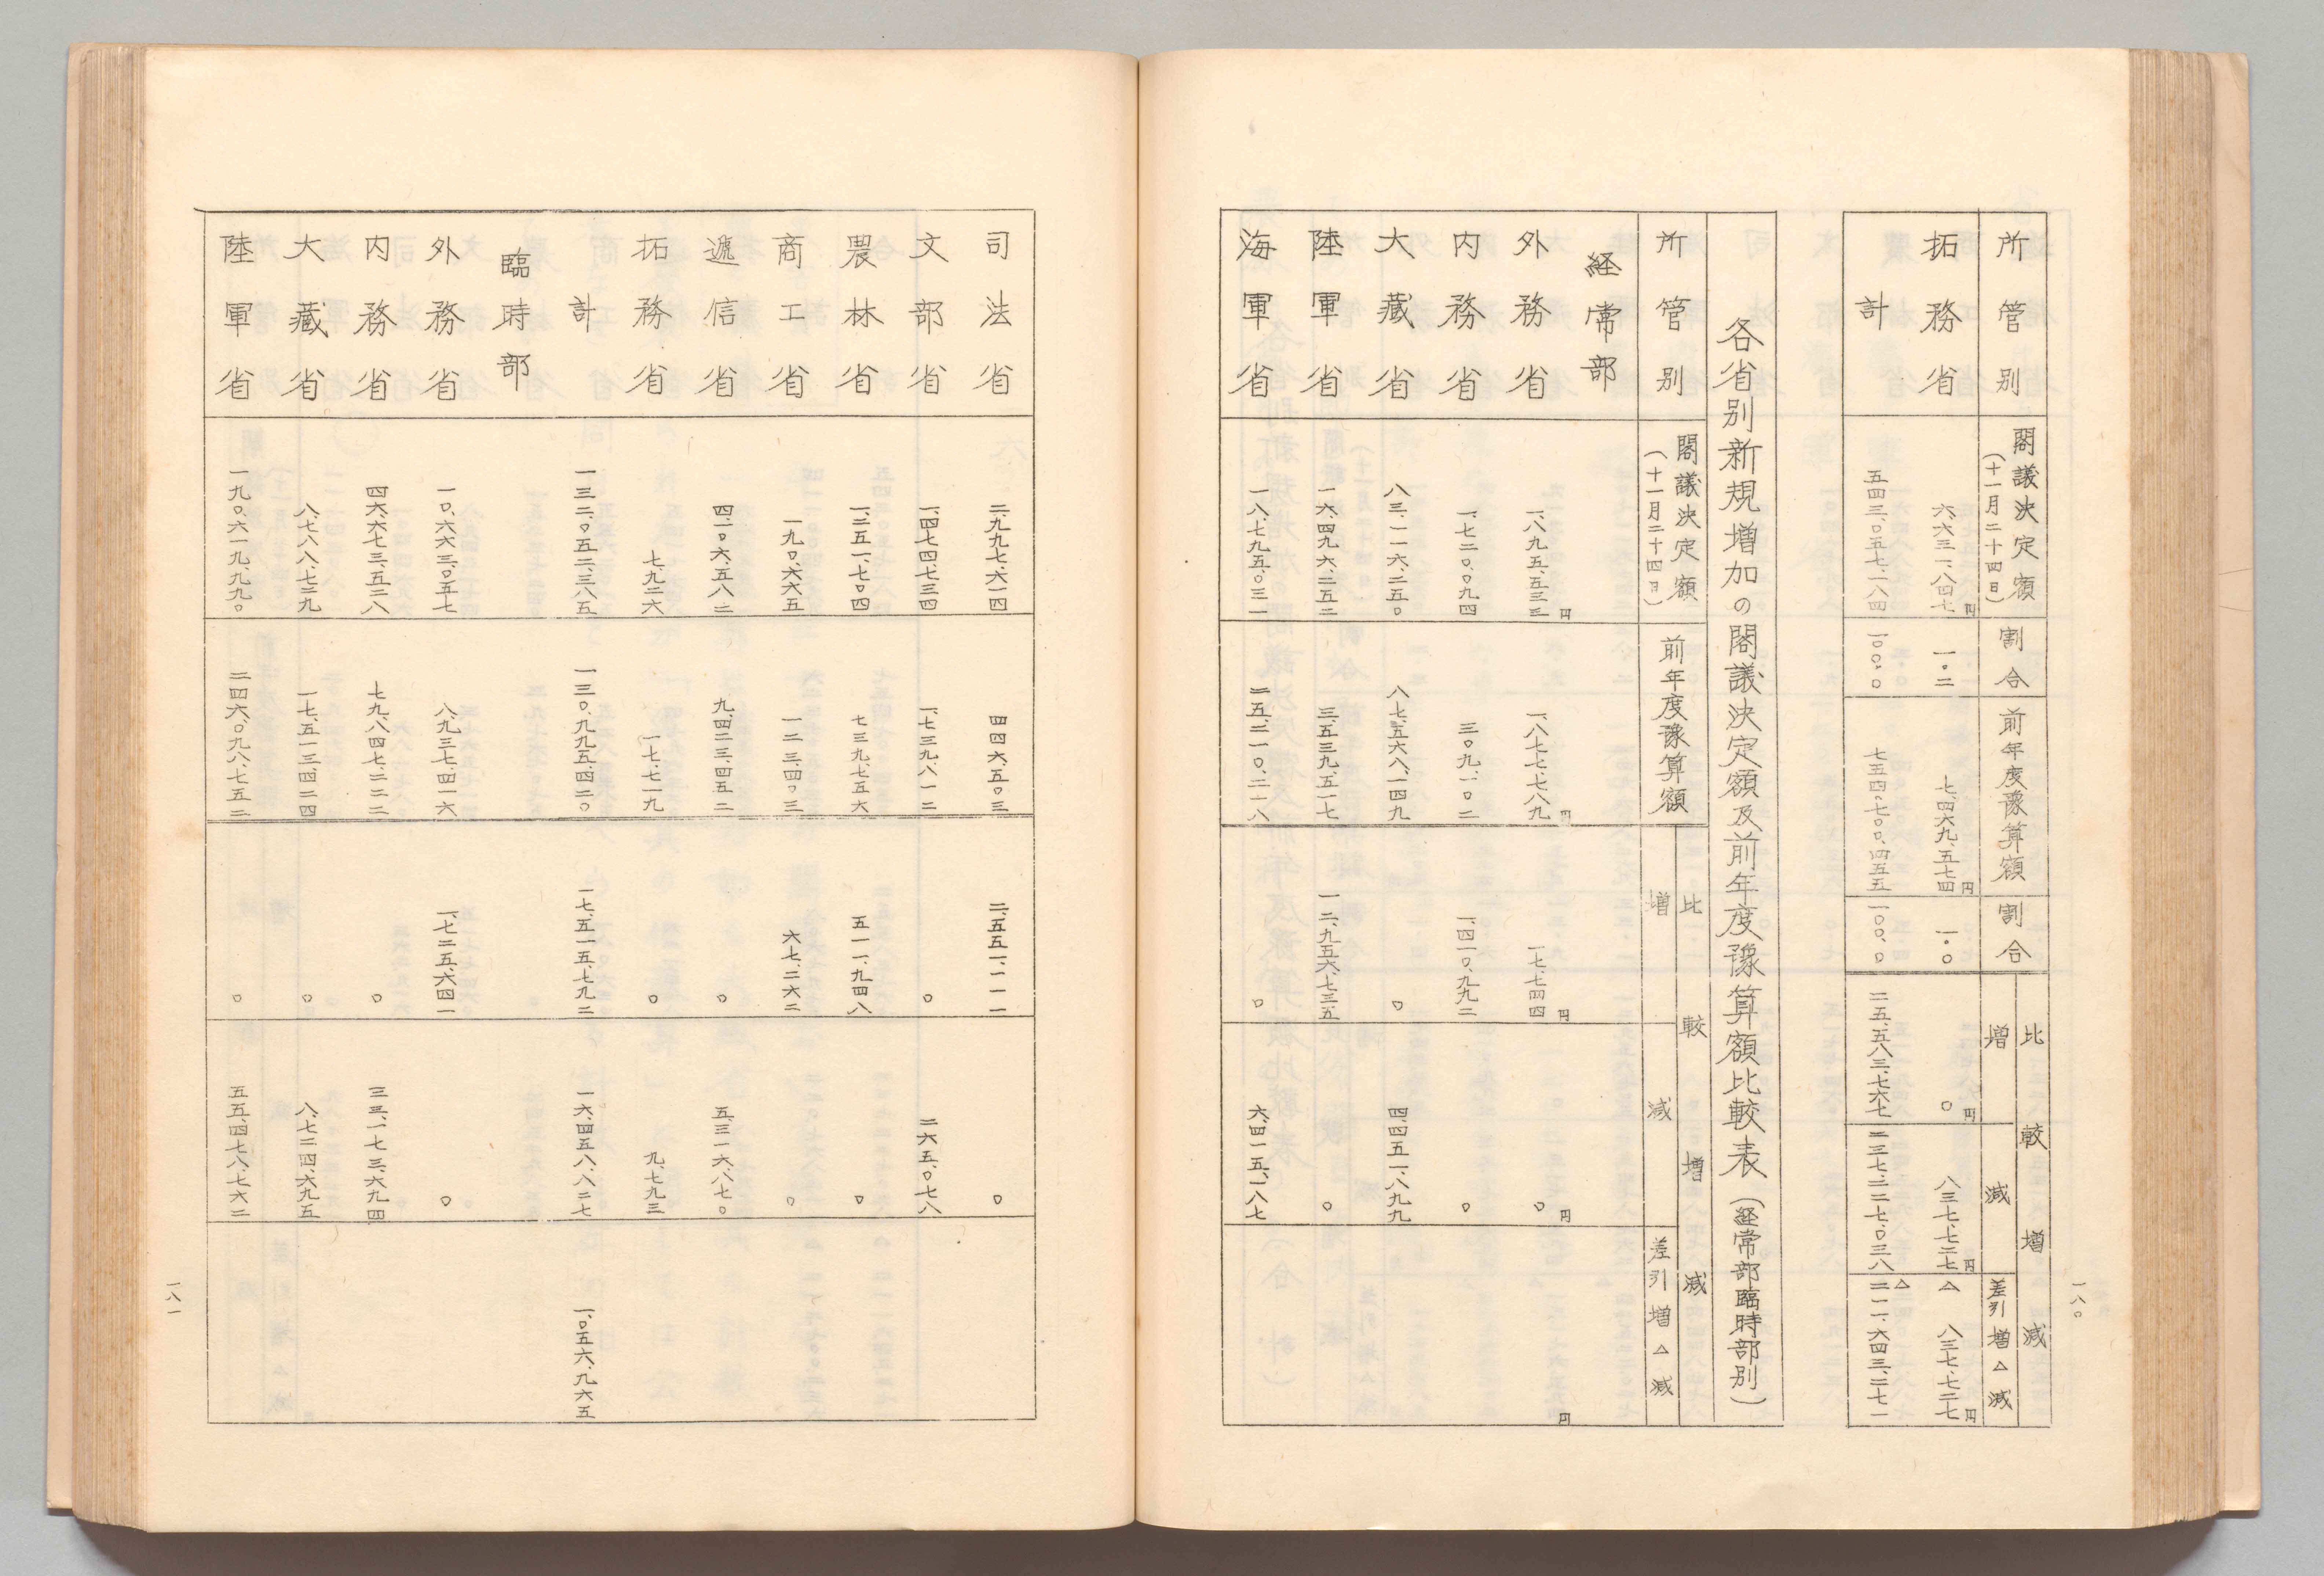 一八〇
所管別 閣議決定額(十一月二十四日) 割合 前年度豫算額 割合 比較増減 増 減 差引増△減
拓務省 六、六三一、八四七円 一.二 七、四六九、五七四円 一.〇 〇円 八三七、七二七円 △八三七、七二七円
計 五四三、〇五七、一八四 一〇〇.〇 七五四、七〇〇、四五五 一〇〇.〇 二五、五八三、七六七 二三七、二二七、〇三八 △二一一、六四三、二七一
各省別新規増加の閣議決定額及前年度豫算額比較表(経常部臨時部別)
所管別 閣議決定額(十一月二十四日) 前年度豫算額 比較増減 増 減 差引増△減
経常部
外務省 一、八九五、五三三円 一、八七七、七八九円 一七、七四四円 〇円 円
内務省 一、七二〇、〇九四 三〇九、一〇二 一、四一〇、九九二 〇
大藏省 八三、一一六、二五〇 八七、五六八、一四九 〇 四、四五一、八九九
陸軍省 一六、四九六、二五二 三、五三九、五一七 一二、九五六、七三五 〇
海軍省 一八、七九五、〇三一 二五、二一〇、二一八 〇 六、四一五、一八七
司法省 二、九九七、六一四 四四六、五〇三 二、五五一、一一一 〇
文部省 一、四七四、七三四 一、七三九、八一二 〇 二六五、〇七八
農林省 一、二五一、七〇四 七三九、七五六 五一一、九四八 〇
商工省 一九〇、六六五 一二三、四〇三 六七、二六二 〇
遞信省 四、一〇六、五八二 九、四二三、四五二 〇 五、三一六、八七〇
拓務省 七、九二六 一七、七一九 〇 九、七九三
計 一三二、〇五二、三八五 一三〇、九九五、四二〇 一七、五一五、七九二 一六、四五八、八二七 一、〇五六、九六五
臨時部
外務省 一〇、六六三、〇五七 八、九三七、四一六 一、七二五、六四一 〇
内務省 四六、六七三、五二八 七九、八四七、二二二 〇 三三、一七三、六九四
大藏省 八、七八八、七二九 一七、五一三、四二四 〇 八、七二四、六九五
陸軍省 一九〇、六一九、九九〇 二四六、〇九八、七五二 〇 五五、四七八、七六二
一八一